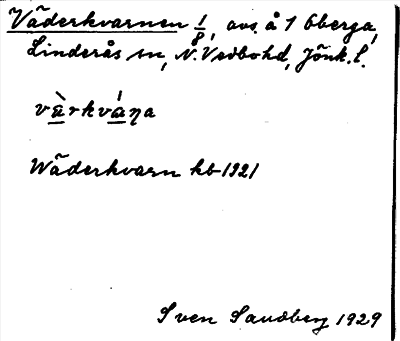 Väderkvarnen 1/8, avs. å 1 Öberga,
Linderås sn, N. Vedbohd, Jönk. l.
värkvaṇa
Wäderkvarn hb 1921
Sven Sandberg 1929